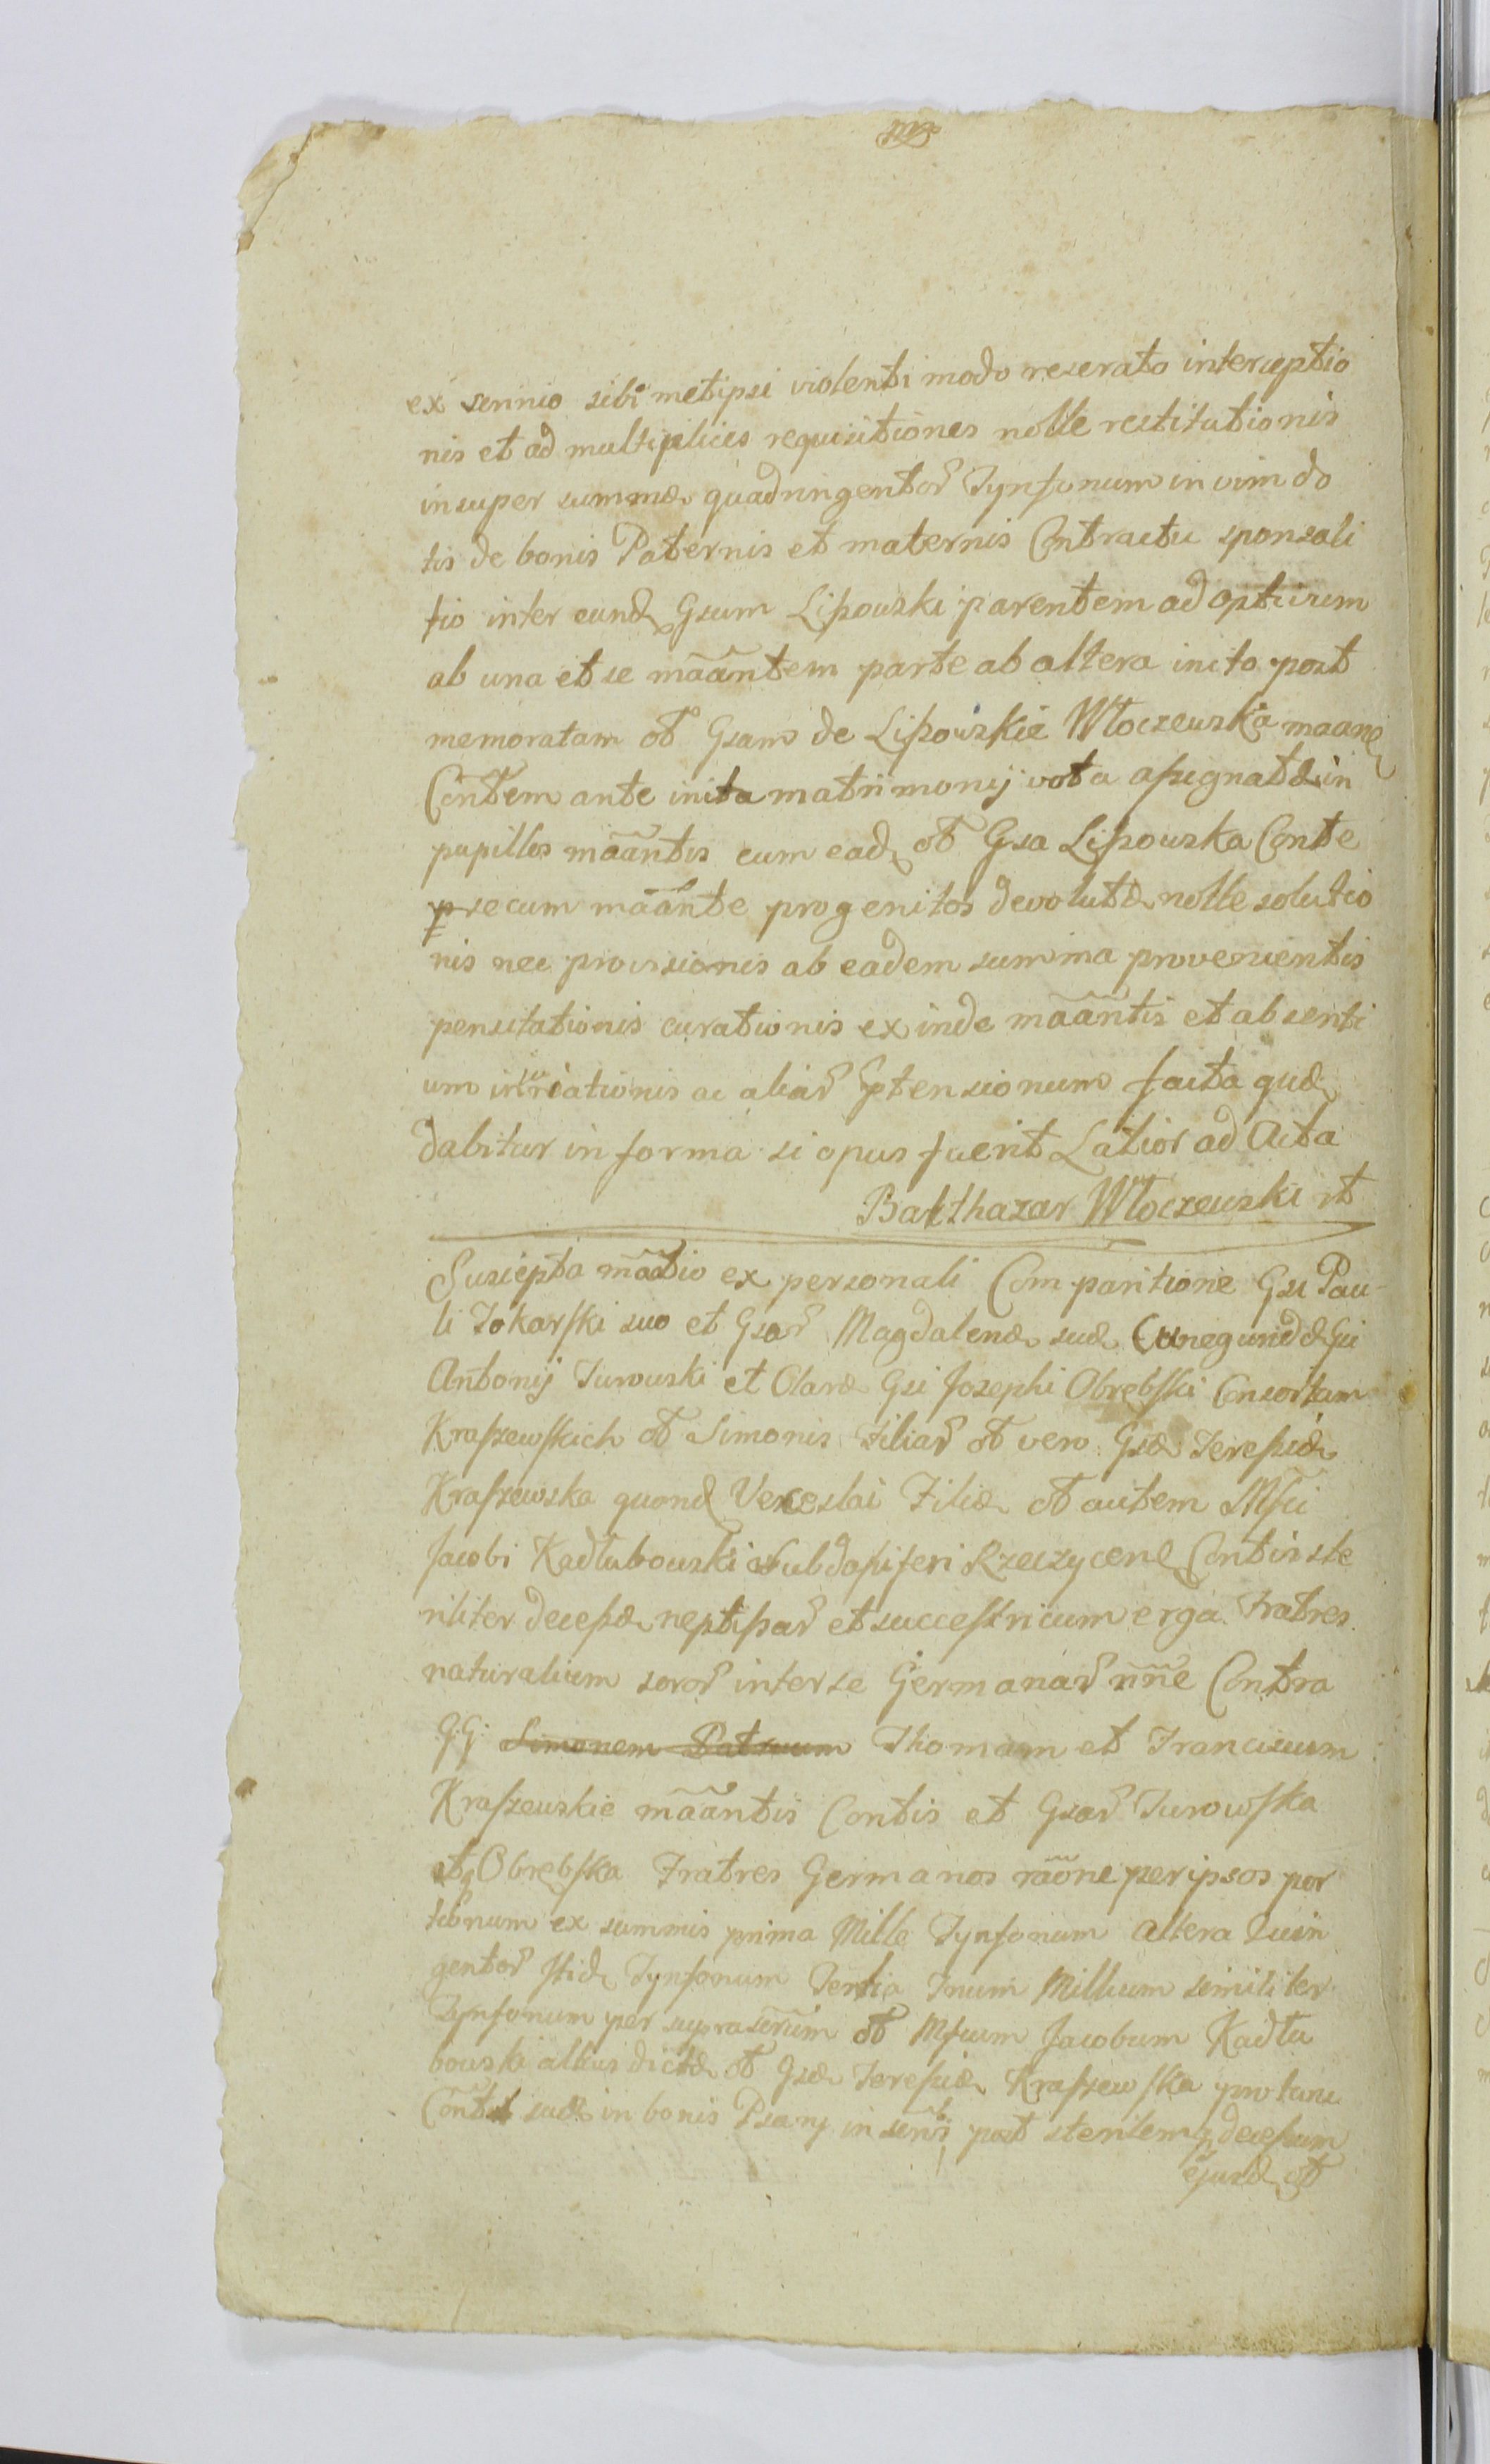 ex scrinio sibi metipsi violenti modo reserato interceptio
nis et ad multiplices requisitiones nolle restitutionis
insuper summæ quadringentor Tynfonum in vim do
tis de bonis Paternis et maternis Contractu sponsali
tio inter eund Gsum Lipowski parentem ad optivum
ab una et se mãantem parte ab altera inito post
memoratam ot Gsam de Lipowskie Włoczewska maane
Contem ante inita matrimonij vota assignatæ in
pupillos mãantis cum ead ot Gsa Lipowska Conte
p secum mãante progenitos devolutæ nolle solutio
nis nec provisionis ab eadem summa provenientis
pensitationis curationis ex inde mãantis et absenti
um ac aliar ptensionum facta quæ
dabitur in forma si opus fuerit Latior ad Acta
Balthazar Włoczewski
Suscepta mãatio ex personali Comparitione Gsi Pau-
li Tokarski suo et Gsar Magdalenæ suæ Cunegundæ Gsi
Antonij Turowski et Claræ Gsi Josephi Obrębski Consortum
Kraszewskich ot Simonis Filiar ot vero Gsæ Teressiæ
Kraszewska quond Venceslai Filiæ ot autem Mfci
Jacobi Kadłubowski Subdapiferi Rzeczycen Contis ste
riliter decessæ neptissar et successricum erga Fratres
naturalium soror inter se Germanar nñe Contra
GG Simonem Patruum Thomam et Franciscum
Kraszewskie mãantis Contis et Gsar Turowska
et Obrębska Fratres Germanos rãone per ipsos por
tionum ex summis prima Mille Tynfonum altera Quin
gentor itid Tynfonum Tertia Trium Millium similiter
Tynfonum per suprascrium ot Mfcum Jacobum Kadłu
bowski altius dictæ ot Gsæ Teressiæ Kraszewska pro tunc
suæ in bonis Psary post sterilem decessum
ejusd ot